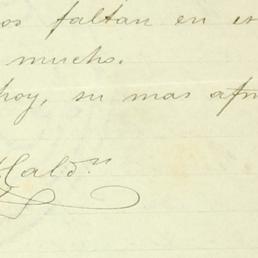 os faltan en es
mucho.
hoy, su mas afm
Hald.ⁿ